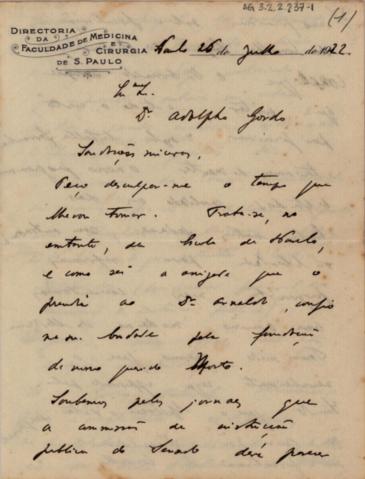 AG 3.2.2.237-1
(1)
DIRECTORIA
DA
FACULDADE DE MEDICINA
E
CIRURGIA
DE S. PAULO
S. Paulo 26 de Julho de 1922.
Dr. Adolpho Gordo
Saudações
Peço desculpar-me o tempo que
tomar. Trata-se, no
entanto, da Escola de S. Paulo,
e como sei a amizade que o
prendia ao Dr. Arnaldo, confio
na sua bondade pela
de nosso querido Morto.
Soubemos pelos jornaes que
a commissão de instrucção
publica do Senado dará parecer